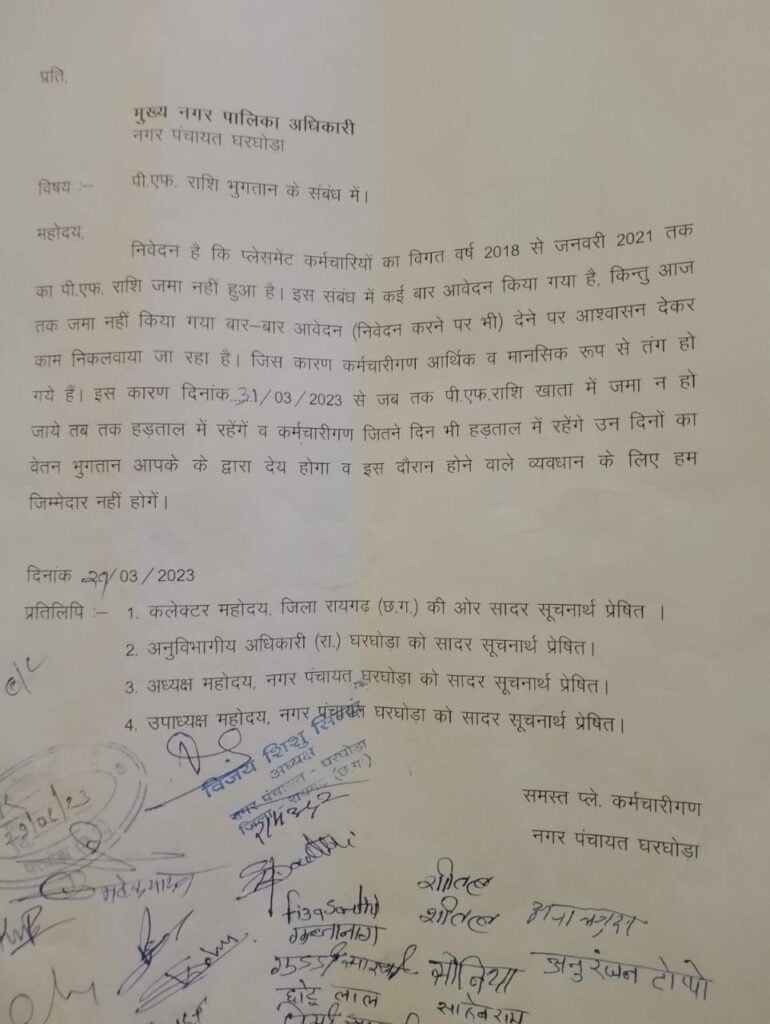 प्रति,
मुख्य नगर पालिका अधिकारी
नगर पंचायत घरघोड़ा
विषय :– पी.एफ. राशि भुगतान के संबंध में।
महोदय,
निवेदन है कि प्लेसमेंट कर्मचारियों का विगत वर्ष 2018 से जनवरी 2021 तक
का पी.एफ. राशि जमा नहीं हुआ है। इस संबंध में कई बार आवेदन किया गया है, किन्तु आज
तक जमा नहीं किया गया बार–बार आवेदन (निवेदन करने पर भी) देने पर आश्वासन देकर
काम निकलवाया जा रहा है। जिस कारण कर्मचारीगण आर्थिक व मानसिक रूप से तंग हो
गये हैं। इस कारण दिनांक..31/03/2023 से जब तक पी.एफ.राशि खाता में जमा न हो
जाये तब तक हड़ताल में रहेंगें व कर्मचारीगण जितने दिन भी हड़ताल में रहेंगे उन दिनों का
वेतन भुगतान आपके के द्वारा देय होगा व इस दौरान होने वाले व्यवधान के लिए हम
जिम्मेदार नहीं होगें।
दिनांक 29/03/2023
प्रतिलिपि :– 1. कलेक्टर महोदय, जिला रायगढ़ (छ.ग.) की ओर सादर सूचनार्थ प्रेषित ।
2. अनुविभागीय अधिकारी (रा.) घरघोड़ा को सादर सूचनार्थ प्रेषित।
3. अध्यक्ष महोदय, नगर पंचायत घरघोड़ा को सादर सूचनार्थ प्रेषित।
4. उपाध्यक्ष महोदय, नगर पंचायत घरघोड़ा को सादर सूचनार्थ प्रेषित।
विजय शिशु सिन्हा
अध्यक्ष
नगर पंचायत - घरघोड़ा
जिला - रायगढ़ (छ.ग.)
समस्त प्ले. कर्मचारीगण
नगर पंचायत घरघोड़ा
शीतल
शीतल
सोनिया
अनुरंजन टोप्पो
छोटू लाल
साहेबराम